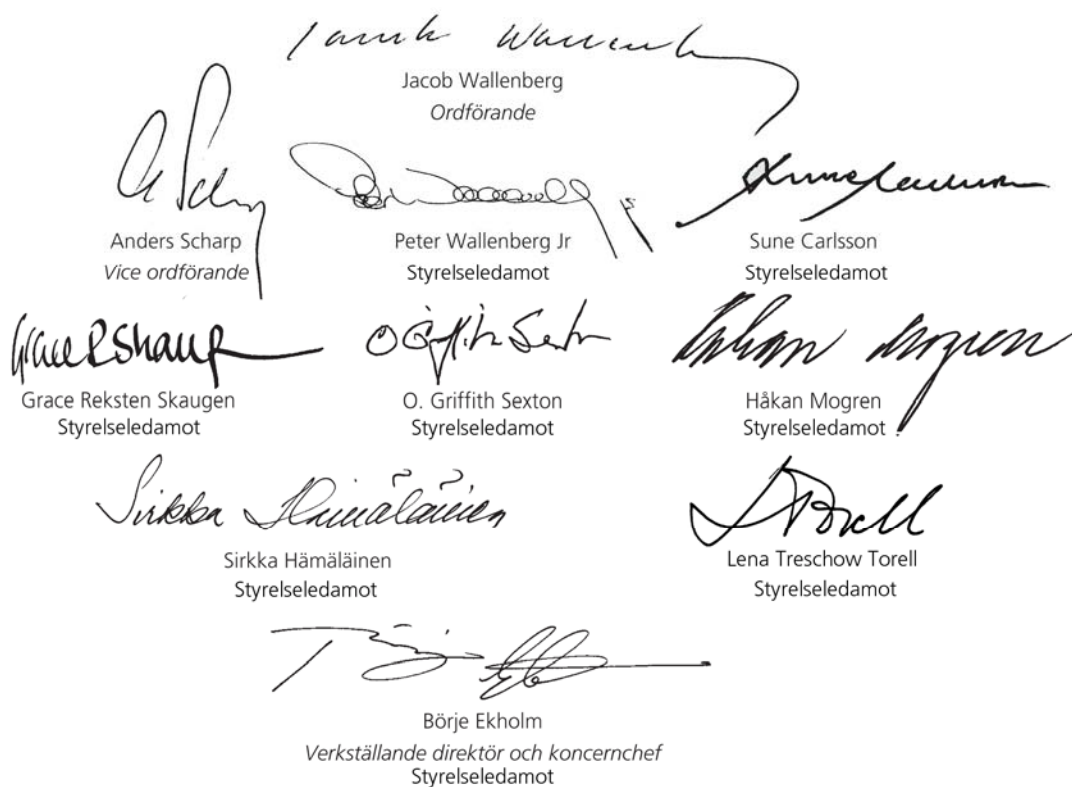 Jacob Wallenberg
Ordförande
Anders Scharp
Vice ordförande
Peter Wallenberg Jr
Styrelseledamot
Sune Carlsson
Styrelseledamot
Grace Reksten Skaugen
Styrelseledamot
O Griffith Sexton
O. Griffith Sexton
Styrelseledamot
Håkan Mogren
Håkan Mogren
Styrelseledamot
Sirkka Hämäläinen
Sirkka Hämäläinen
Styrelseledamot
Lena Treschow Torell
Styrelseledamot
Börje Ekholm
Verkställande direktör och koncernchef
Styrelseledamot